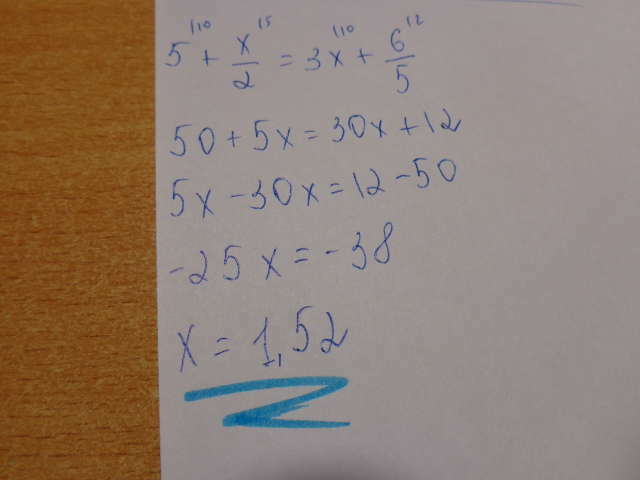 5^{|10} + \frac{x}{2}^{|5} = 3x^{|10} + \frac{6}{5}^{|2}
50 + 5x = 30x + 12
5x - 30x = 12 - 50
-25x = -38
x = 1,52